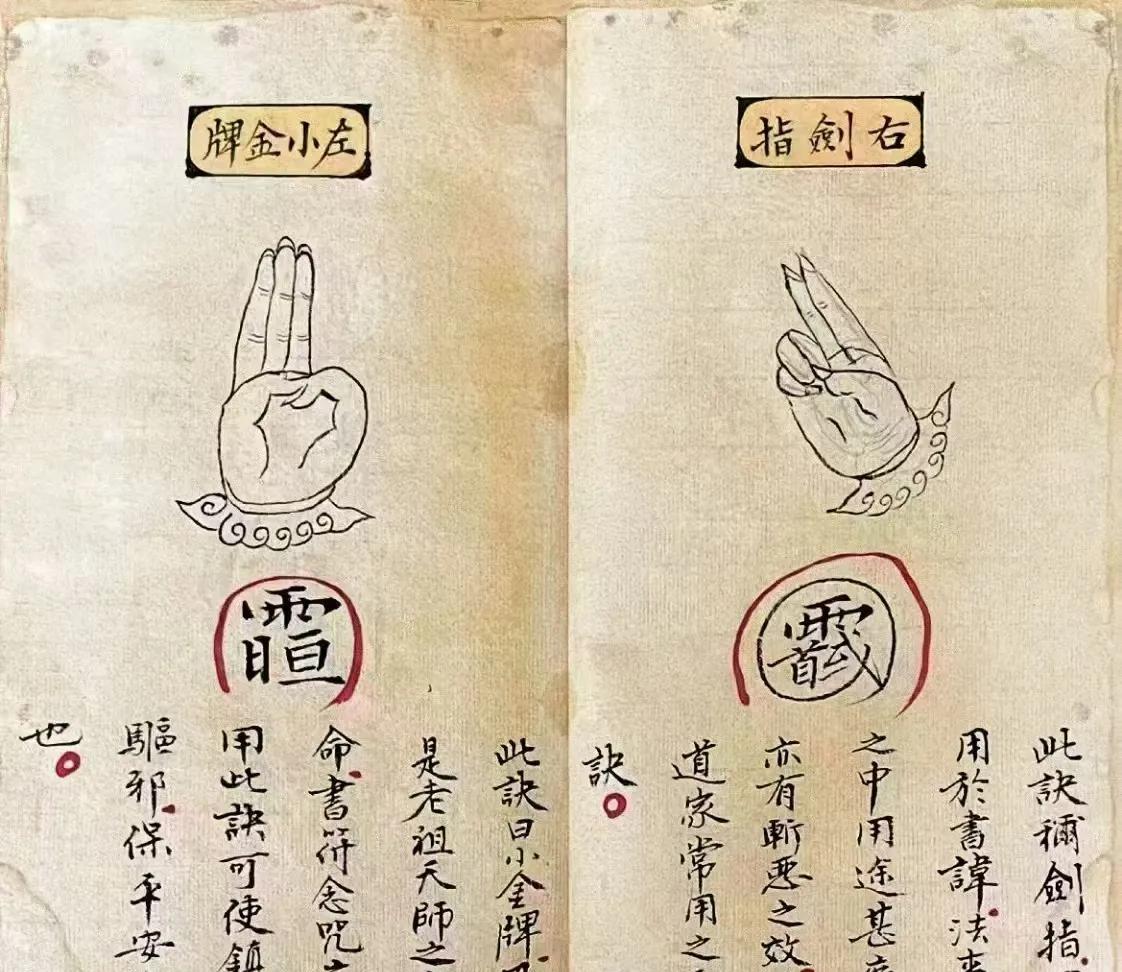 右劍指
此訣穪劍指
用於書諱法
之中用途甚
亦有斬惡之效
道家常用之
訣
左小金牌
此訣曰小金牌
是老祖天師之
命書符念咒
用此訣可使鎮
驅邪保平安
也